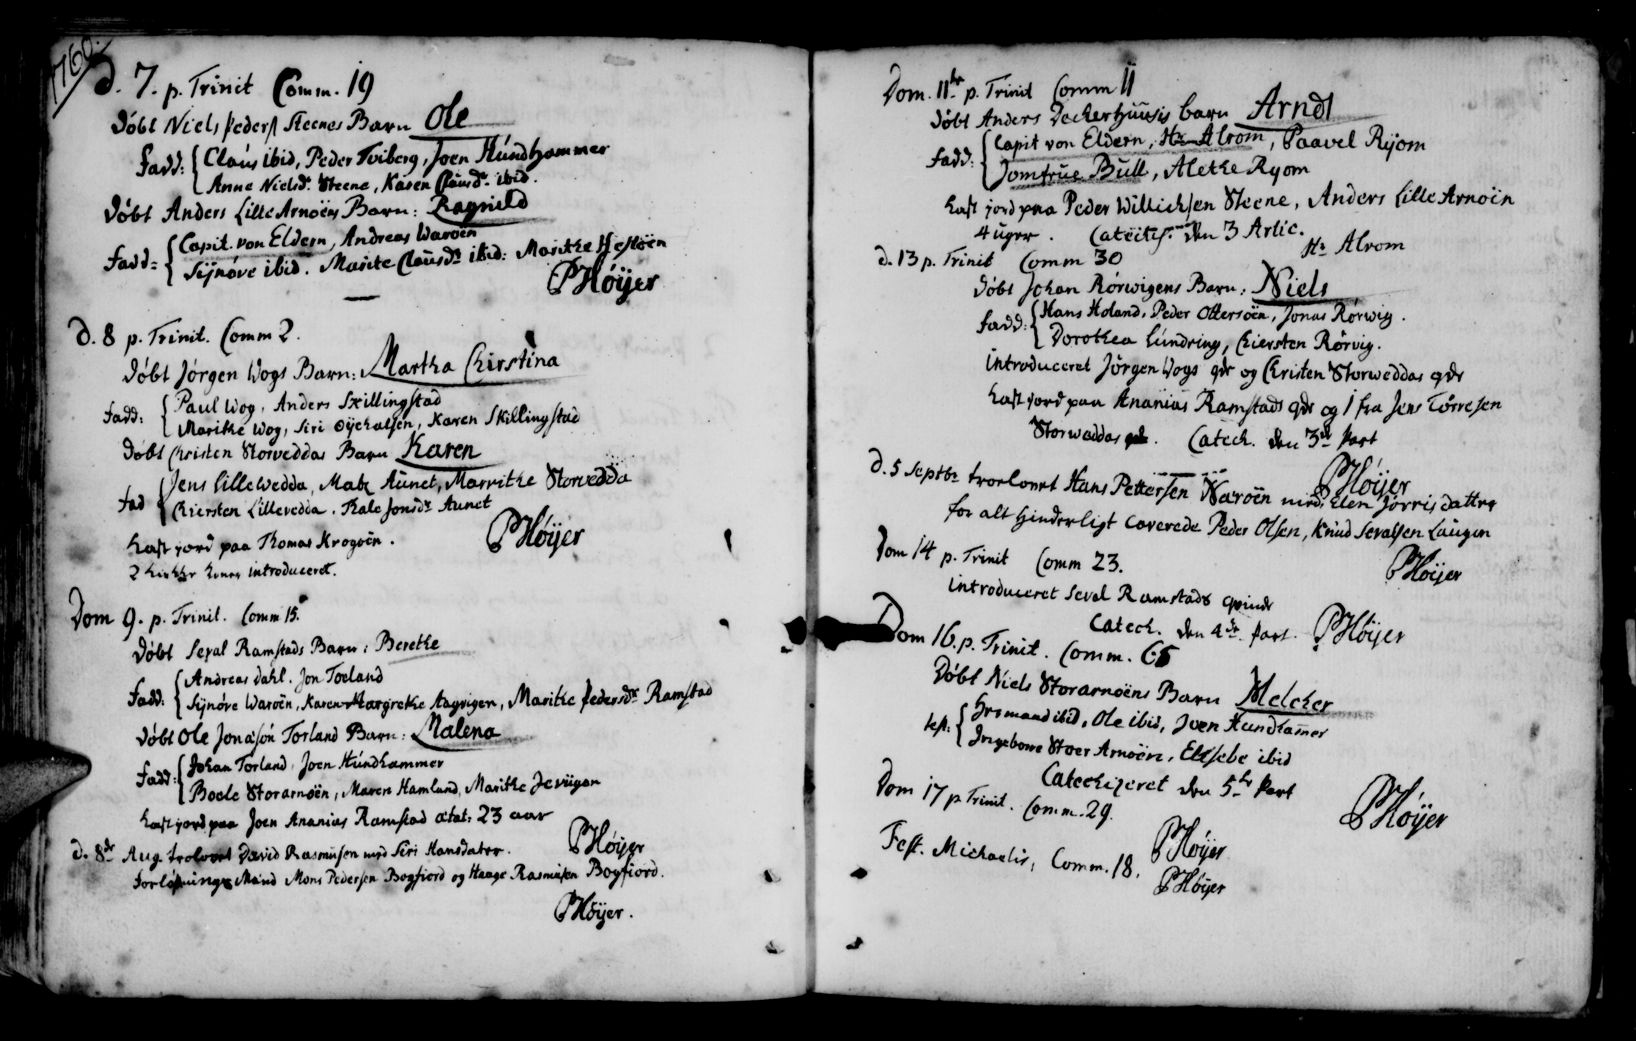 1760.
d. 7. p. Trinit Comm. 19
Döbt Niels Peders Steenes Barn Ole
Fadd: Claus ibid, Peder Tviberg, Joen Hundhammer
Anne Nielsdr Steene, Karen Clausdr ibid.
Döbt Anders Lille Arnöens Barn: Ragnild
Fadd: Capit. von Eldern, Andreas Waröen
Sijnöve ibid. Marite Clausdr ibid: Maritke Hestöen
PHöijer
d. 8 p. Trinit. Comm 2.
Döbt Jörgen Wogs Barn: Martha Chirstina
Fadd: Paul Wog, Anders Skillingstad
Maritke Wog, Siri Öijchalsen, Karen Skillingstad
Döbt Christen Storveddas Barn Karen
Fad Jens Lillewedda, Matz Aunet, Marritke Storvedda
Chiersten Lillevedda. Kale Jonsdr Aunet
kast jord paa Thomas Krogöen.
PHöijer
2 introduceret.
Dom 9. p. Trinit. Comm 15.
Döbt Seval Ramstads Barn: Beretke
Fadd: Andreas Dahl. Jon Torland
Sijnöve Waröen, Karen Margretke Aagvigen, Maritke Pedersdr Ramstad
Döbt Ole Jonasön Torland Barn: Malena
Fadd: Johan Torland, Joen Hundhammer
Boele Storarnöen, Maren Hamland, Maritke
kast jord paa Joen Ananias Ramstad ætat: 23 aar
PHöijer
d. 8de Aug. trolovet David Rasmusen med Siri Hansdater.
Forlöfnings Mænd Mons Pedersen Bogfiord og Haage Rasmusen Bogfiord.
PHöijer.
Dom. 11te p. Trinit Comm 11
Döbt Anders Deckerhuusis barn Arndt
Fadd: Capit von Eldern, Hr Alrom, Paavel Rijom
Jomfrue Bull, Aletke Ryom
kast jord paa Peder Willichsen Steene, Anders Lille Arnöen
4 uger. Catechs. den 3 Artic.
Hr Alrom
d. 13 p. Trinit Comm 30
Döbt Johan Rörwigens Barn: Niels
Fadd: Hans Holand, Peder Ottersöen, Jonas Rörwig.
Dorothea Lundring, Chiersten Rörvig.
introduceret Jörgen Wogs qdr og Christen Storweddas qdr
kast jord paa Ananias Ramstads qdr og 1 fra Jens Törresen
Storweddas. Catech. den 3de Part
PHöijer
d. 5 Septbr troelovet Hans Pettersen Naröen med Elen Jörrisdatter
for alt Hinderligt caverede Peder Olsen, Knud Sevalsen Laugen
PHöijer
Dom 14 p. Trinit Comm 23.
introduceret Seval Ramstads qvinde
Catech. den 4de Part. PHöijer
Dom 16. p. Trinit. Comm. 65
Döbt Niels Storarnöens Barn Melcher
test: ibid, Ole ibid, Joen Hundhamer
Ingebore Stoer Arnöen, Elsebe ibid
Catechizeret den 5te Part
PHöijer
Dom 17 p Trinit. Comm. 29.
PHöijer
Fest. Michaelis, Comm. 18.
PHöijer